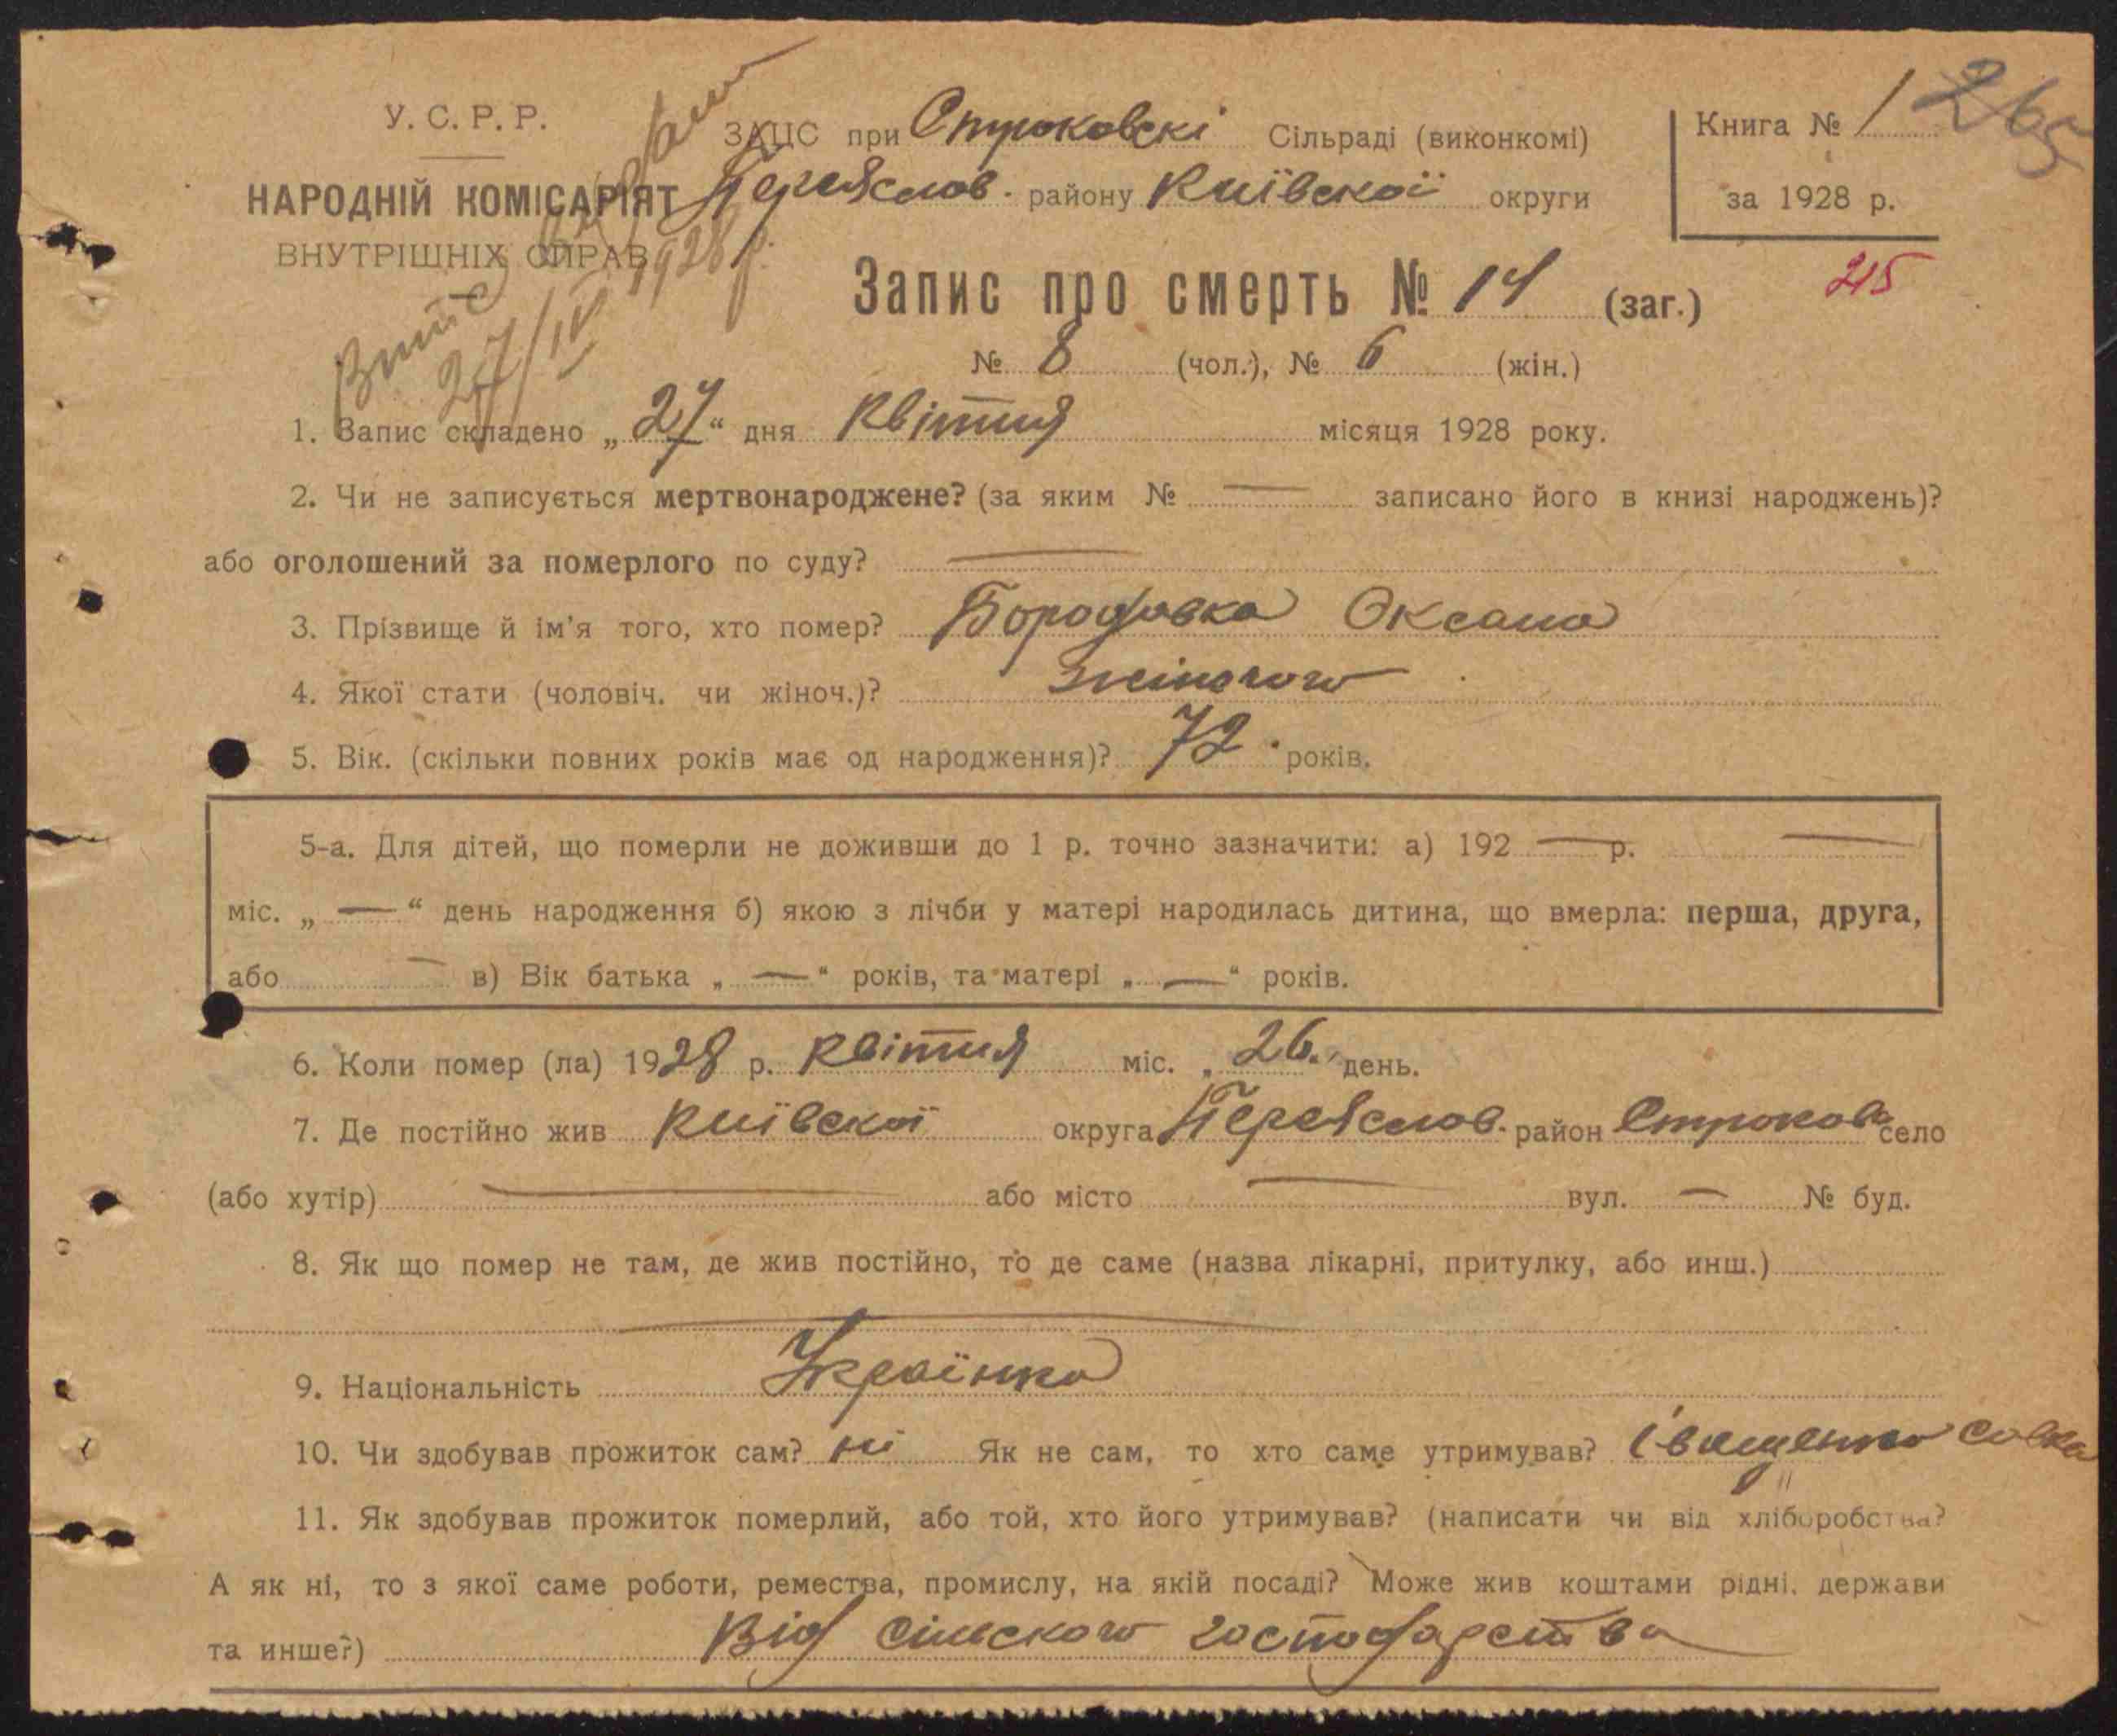 У. С. Р. Р.
НАРОДНІЙ КОМІСАРІЯТ
ВНУТРІШНІХ СПРАВ
27/IV 1928 р.
ЗАЦС при Строковскі Сільраді (виконкомі)
Переяслов. району Київскої округи
Книга № 1
265
за 1928 р.
215
Запис про смерть № 14 (заг.)
№ 8 (чол.), № 6 (жін.)
1. Запис складено „27“ дня Квітня місяця 1928 року.
2. Чи не записується мертвонароджене? (за яким № — записано його в книзі народжень)?
або оголошений за померлого по суду? —
3. Прізвище й ім'я того, хто помер? Бородавка Оксана
4. Якої стати (чоловіч. чи жіноч.)? жіночого
5. Вік. (скільки повних років має од народження)? 72 років.
5-а. Для дітей, що померли не доживши до 1 р. точно зазначити: а) 192 — р. —
міс. „ — “ день народження б) якою з лічби у матері народилась дитина, що вмерла: перша, друга,
або — в) Вік батька „ — “ років, та матері „ — “ років.
6. Коли помер (ла) 1928 р. Квітня міс. „26“ день.
7. Де постійно жив Київскої округа Переяслов. район Строкова село
(або хутір) — або місто — вул. — № буд.
8. Як що помер не там, де жив постійно, то де саме (назва лікарні, притулку, або инш.)
—
9. Національність Українка
10. Чи здобував прожиток сам? ні Як не сам, то хто саме утримував? Іващенко Савка
11. Як здобував прожиток померлий, або той, хто його утримував? (написати чи від хліборобства?
А як ні, то з якої саме роботи, ремества, промислу, на якій посаді? Може жив коштами рідні, держави
та инше?) Від сільского господарства